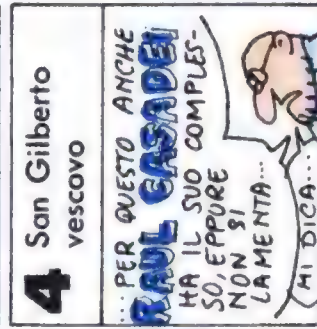 4 San Gilberto
vescovo
... PER QUESTO ANCHE
RAUL CASADEI
HA IL SUO COMPLES-
SO, EPPURE
NON SI
LAMENTA...
MI DICA...